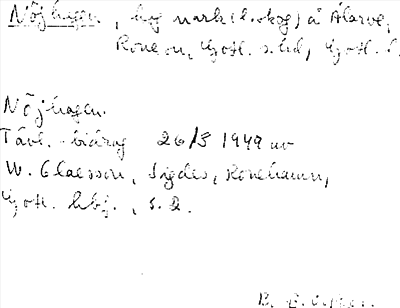 Nöjhagen, hog mark (l. skog) å Älarve,
Rone sn, Gotl. s. hd, Gotl. l.
Nöjhagen.
Tävl.-bidrag 26/3 1949 av
W. Claesson, Sigdes, Ronehamn,
Gotl. hbf., s. 2.